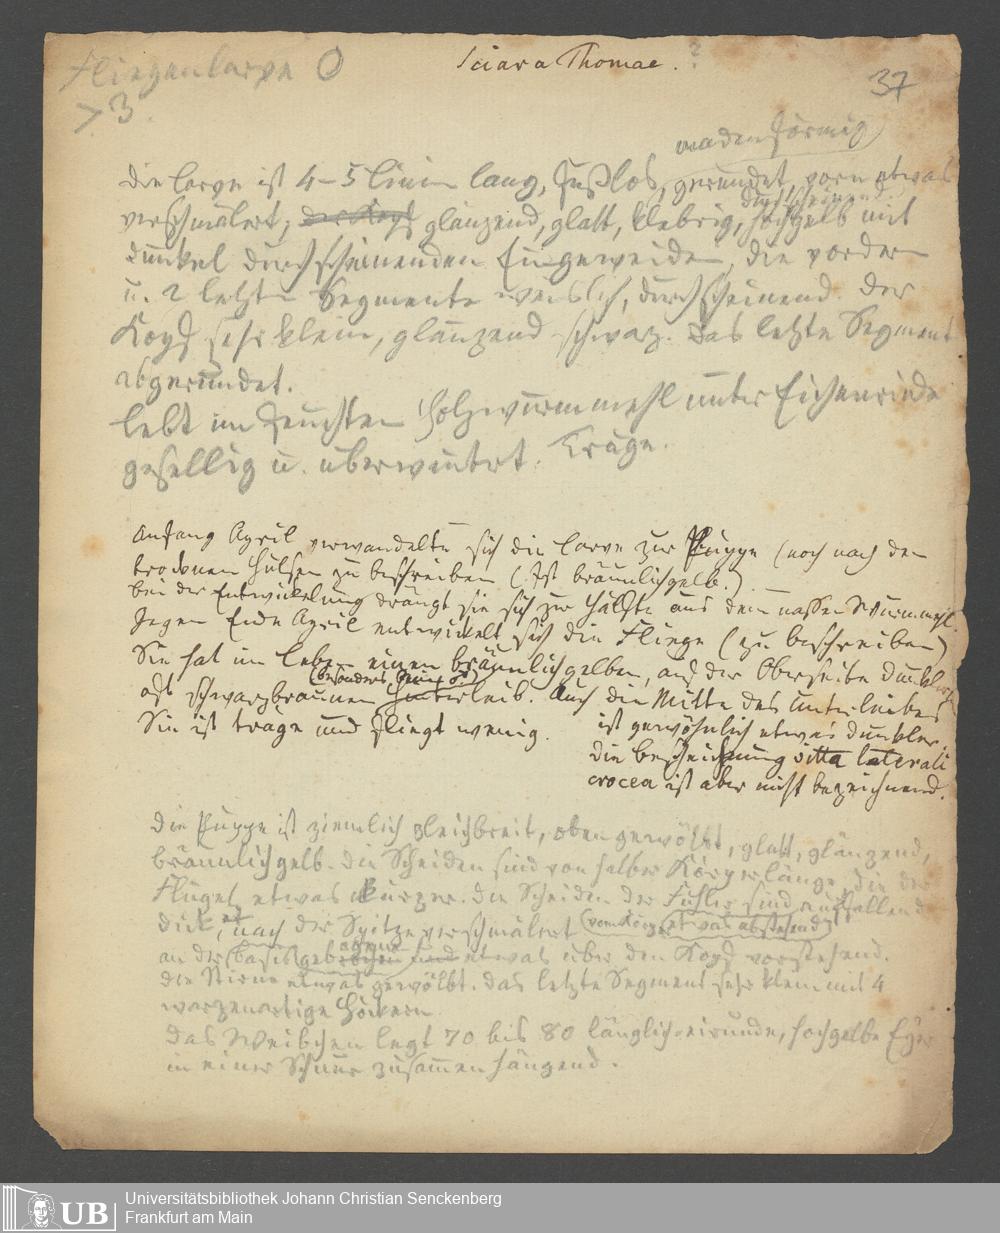 Fliegenlarve O
Sciara Thomae. ?
37
> 3.
madenförmig
die Larve ist 4–5 Linien lang, fußlos, gerundet, vorn etwas
durchscheinend
verschmälert, der Kopf glänzend, glatt, klebrig, hochgelb mit
dunkel durchscheinenden Eingeweiden, die vordern
u. 2 letzten Segmente weislich, durchscheinend. Der
Kopf sehr klein, glänzend schwarz. Das letzte Segment
abgerundet.
Lebt im feuchten Holzwurmmehl unter Eichenrinde
gesellig u. überwintert. Träge.
Anfang April verwandelte sich die Larve zur Puppe (noch nach den
trocknen Hülsen zu beschreiben (Ist bräunlichgelb.)
bei der Entwickelung drängt sie sich zur Hälfte aus dem nassen Wurmmehl.
Gegen Ende April entwickelt sich die Fliege (zu beschreiben)
Sie hat im Leben einen bräunlichgelben, auf der Oberseite dunklern
(besonders beim
oft schwarzbraunen Hinterleib. Auch die Mitte des Unterleibes
Sie ist träge und fliegt wenig.
ist gewöhnlich etwas dunkler.
die Bezeichnung vitta laterali
crocea ist aber nicht bezeichnend.
Die Puppe ist ziemlich gleichbreit, oben gewölbt, glatt, glänzend,
bräunlichgelb. die Scheiden sind von halber Körperlänge, die der
Flügel etwas kürzer. Die Scheiden der Fühler sind auffallend
dick, nach der Spitze verschmälert (vom Körper etwas abstehend)
an der Basis gebogen und etwas über den Kopf vorstehend.
die Stirne etwas gewölbt. das letzte Segment sehr klein mit 4
warzenartigen Höckern.
Das Weibchen legt 70 bis 80 länglich-eirunde, hochgelbe Eyer
in einer Schnur zusammenhängend.
UB
Universitätsbibliothek Johann Christian Senckenberg
Frankfurt am Main